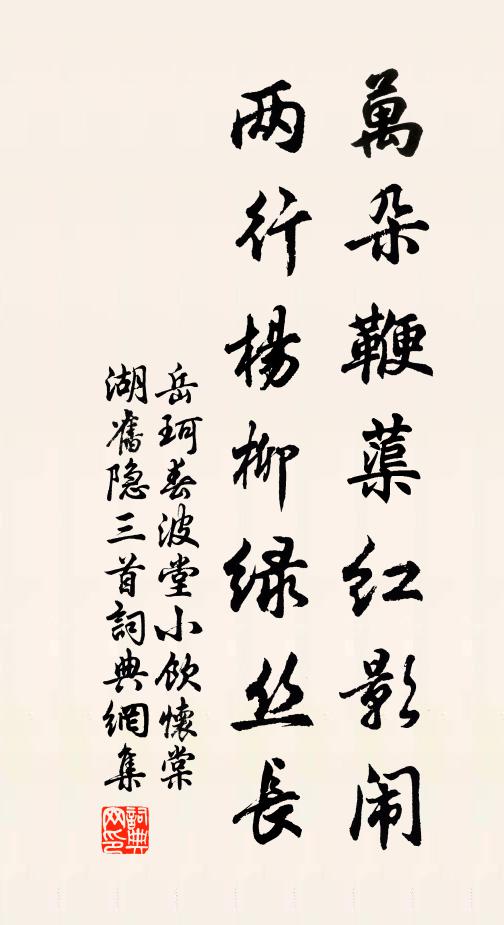 萬朵鞭蕖红影闹
两行楊柳绿丝長
岳珂春波堂小饮懷棠
湖舊隐三首詞典網集
詞典
网印